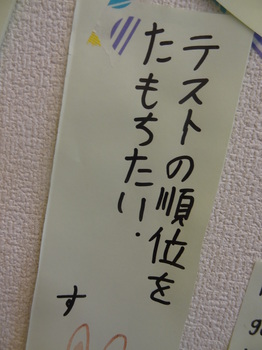 テストの順位を
たもちたい.
す